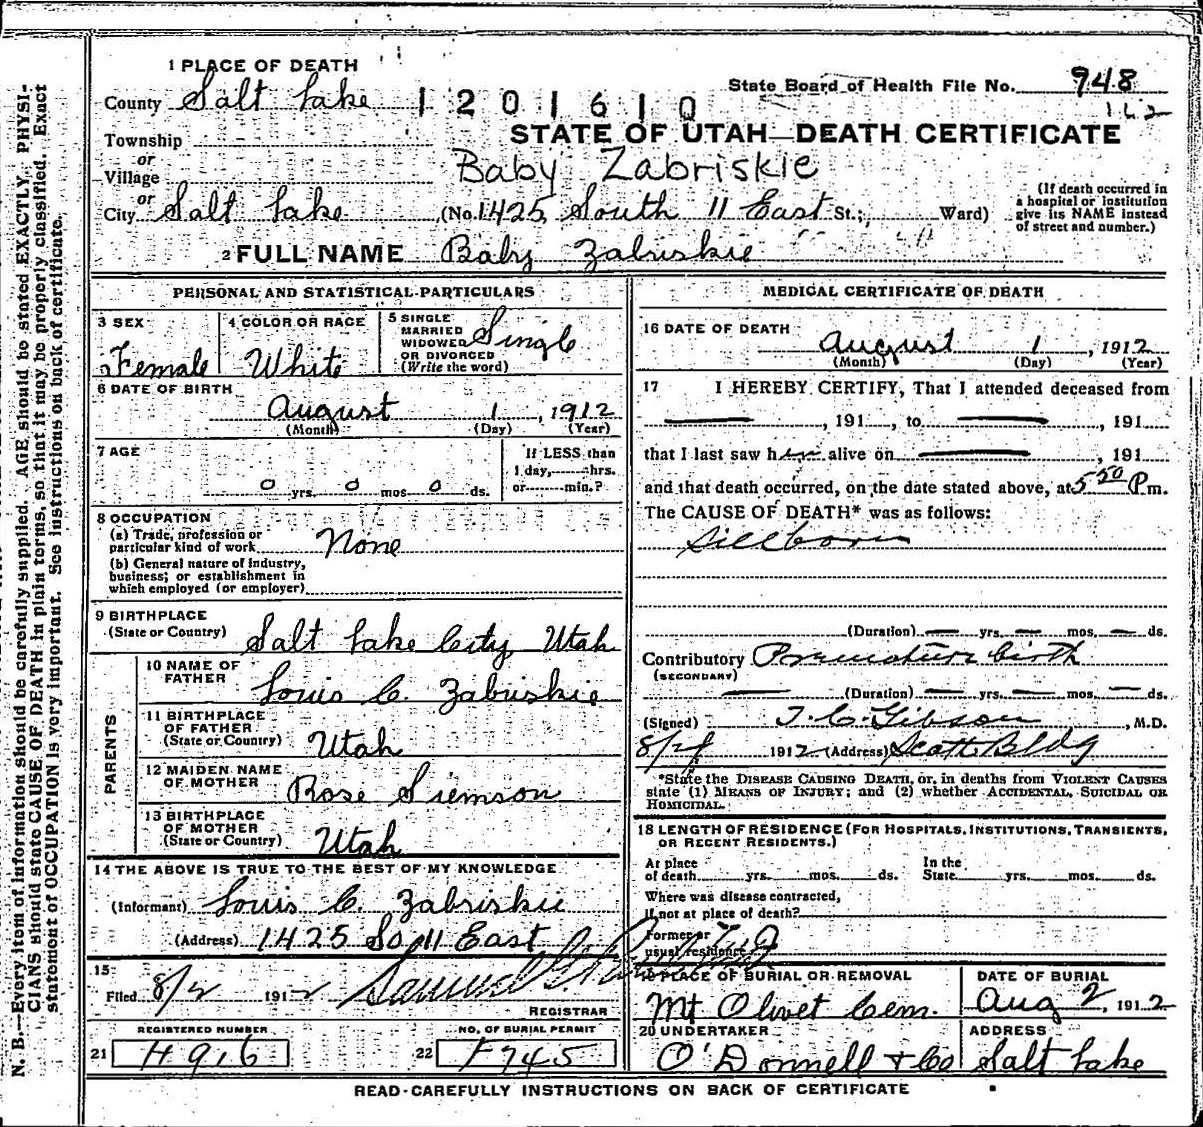 1 PLACE OF DEATH
State Board of Health File No. 948
County Salt Lake 1201610
162
STATE OF UTAH—DEATH CERTIFICATE
Township
or
Village
Baby Zabriskie
or
City Salt Lake (No. 1425 South 11 East St.; Ward)
(If death occurred in a hospital or institution give its NAME instead of street and number.)
2 FULL NAME Baby Zabriskie
PERSONAL AND STATISTICAL PARTICULARS
3 SEX Female
4 COLOR OR RACE White
5 SINGLE MARRIED WIDOWED OR DIVORCED (Write the word) Single
6 DATE OF BIRTH
August 1, 1912
(Month) (Day) (Year)
7 AGE
0 yrs. 0 mos. 0 ds.
If LESS than
1 day, hrs.
or min.?
8 OCCUPATION
(a) Trade, profession or
particular kind of work None
(b) General nature of industry,
business; or establishment in
which employed (or employer)
9 BIRTHPLACE
(State or Country) Salt Lake City Utah
PARENTS
10 NAME OF
FATHER Louis C. Zabriskie
11 BIRTHPLACE
OF FATHER
(State or Country) Utah
12 MAIDEN NAME
OF MOTHER Rose Siemson
13 BIRTHPLACE
OF MOTHER
(State or Country) Utah
14 THE ABOVE IS TRUE TO THE BEST OF MY KNOWLEDGE
(Informant) Louis C. Zabriskie
(Address) 1425 So 11 East
15
Filed 8/2 1912 Samuel G.
REGISTRAR
REGISTERED NUMBER
21 H916
NO. OF BURIAL PERMIT
22 F745
MEDICAL CERTIFICATE OF DEATH
16 DATE OF DEATH
August 1, 1912
(Month) (Day) (Year)
17 I HEREBY CERTIFY, That I attended deceased from
, 191 , to , 191
that I last saw h alive on , 191
and that death occurred, on the date stated above, at 5 50 P m.
The CAUSE OF DEATH* was as follows:
Stillborn
(Duration) yrs. mos. ds.
Contributory Premature birth
(SECONDARY)
(Duration) yrs. mos. ds.
(Signed) T. C. Gibson, M.D.
1912 (Address) Scott Bldg
*State the DISEASE CAUSING DEATH, or, in deaths from VIOLENT CAUSES
state (1) MEANS OF INJURY; and (2) whether ACCIDENTAL, SUICIDAL OR
HOMICIDAL.
18 LENGTH OF RESIDENCE (FOR HOSPITALS, INSTITUTIONS, TRANSIENTS,
OR RECENT RESIDENTS.)
At place In the
of death yrs. mos. ds. State yrs. mos. ds.
Where was disease contracted,
if not at place of death?
Former or
usual residence
19 PLACE OF BURIAL OR REMOVAL
Mt Olivet Cem.
DATE OF BURIAL
Aug 2, 1912
20 UNDERTAKER
O'Donnell & Co
ADDRESS
Salt Lake
READ CAREFULLY INSTRUCTIONS ON BACK OF CERTIFICATE
N. B.—Every item of information should be carefully supplied. AGE should be stated EXACTLY. PHYSI-
CIANS should state CAUSE OF DEATH in plain terms, so that it may be properly classified. Exact
statement of OCCUPATION is very important. See instructions on back of certificate.